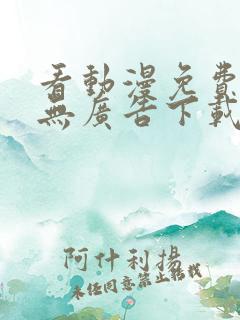 看動漫免費
無廣告下載
阿什利揚
未经同意禁止转载